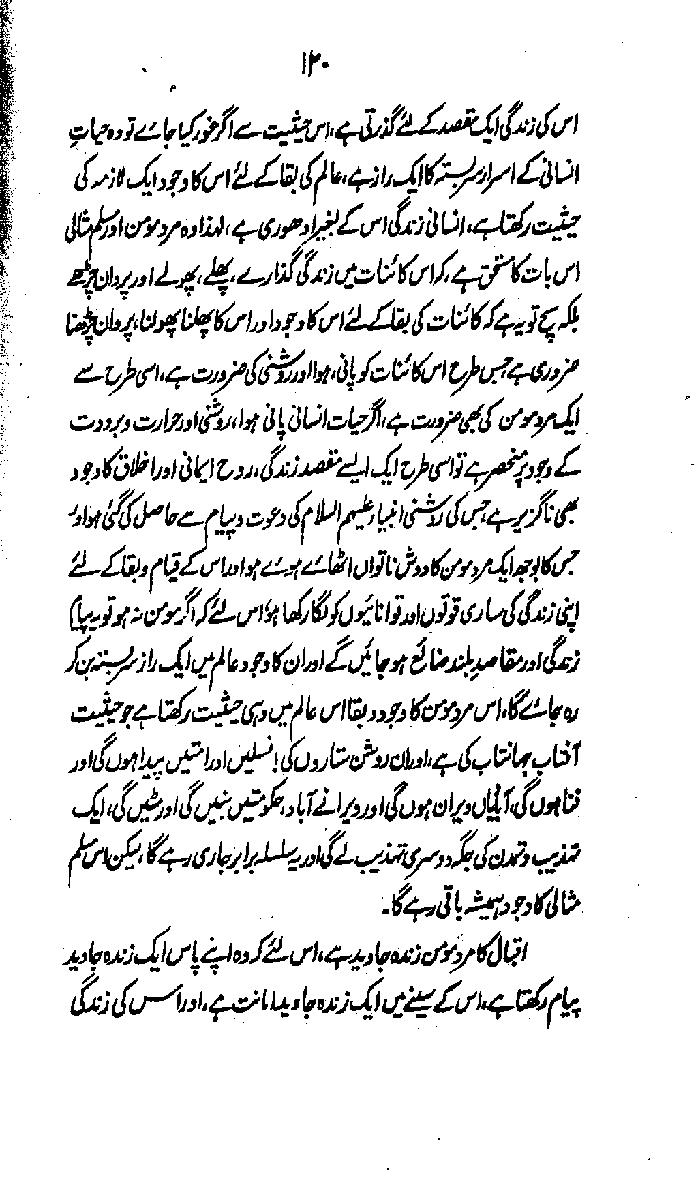 ۱۲۰
اس کی زندگی ایک مقصد کے لئے گذرتی ہے، اس حیثیت سے اگر غور کیا جائے تو وہ حیاتِ
انسانی کے اسرار سربستہ کا ایک راز ہے، عالم کی بقا کے لئے اس کا وجود ایک لازمہ کی
حیثیت رکھتا ہے، انسانی زندگی اس کے بغیر ادھوری ہے، لہذا وہ مرد مومن اور مسلم مثالی
اس بات کا مستحق ہے، کہ اس کائنات میں زندگی گذارے، پھلے، پھولے اور پروان چڑھے
بلکہ سچ تو یہ ہے کہ کائنات کی بقا کے لئے اس کا وجود اور اس کا پھلنا پھولنا، پروان چڑھنا
ضروری ہے جس طرح اس کائنات کو پانی، ہوا اور روشنی کی ضرورت ہے، اسی طرح سے
ایک مرد مومن کی بھی ضرورت ہے، اگر حیات انسانی پانی ہوا، روشنی اور حرارت و برودت
کے وجود پر منحصر ہے تو اسی طرح ایک ایسے مقصد زندگی، روح ایمانی اور اخلاق کا وجود
بھی ناگزیر ہے جس کی روشنی انبیاء علیہم السلام کی دعوت و پیام سے حاصل کی گئی ہو اور
جس کا بوجھ ایک مرد مومن کا دوش ناتواں اٹھائے ہوئے ہو اور اس کے قیام و بقا کے لئے
اپنی زندگی کی ساری قوتوں اور توانائیوں کو لگا رکھا ہو، اس لئے کہ اگر مومن نہ ہو تو یہ پیام
زندگی اور مقاصدِ بلند ضائع ہو جائیں گے اور ان کا وجود عالم میں ایک راز سربستہ بن کر
رہ جائے گا، اس مرد مومن کا وجود و بقا اس عالم میں وہی حیثیت رکھتا ہے جو حیثیت
آفتاب جہانتاب کی ہے، اور ان روشن ستاروں کی! نسلیں اور امتیں پیدا ہوں گی اور
فنا ہوں گی، آبادیاں ویران ہوں گی اور ویرانے آباد، حکومتیں بنیں گی اور مٹیں گی، ایک
تہذیب و تمدن کی جگہ دوسری تہذیب لے گی اور یہ سلسلہ برابر جاری رہے گا، لیکن اس مسلم
مثالی کا وجود ہمیشہ باقی رہے گا۔
اقبال کا مرد مومن زندہ جاوید ہے، اس لئے کہ وہ اپنے پاس ایک زندہ جاوید
پیام رکھتا ہے، اس کے سینے میں ایک زندہ جاوید امانت ہے، اور اس کی زندگی